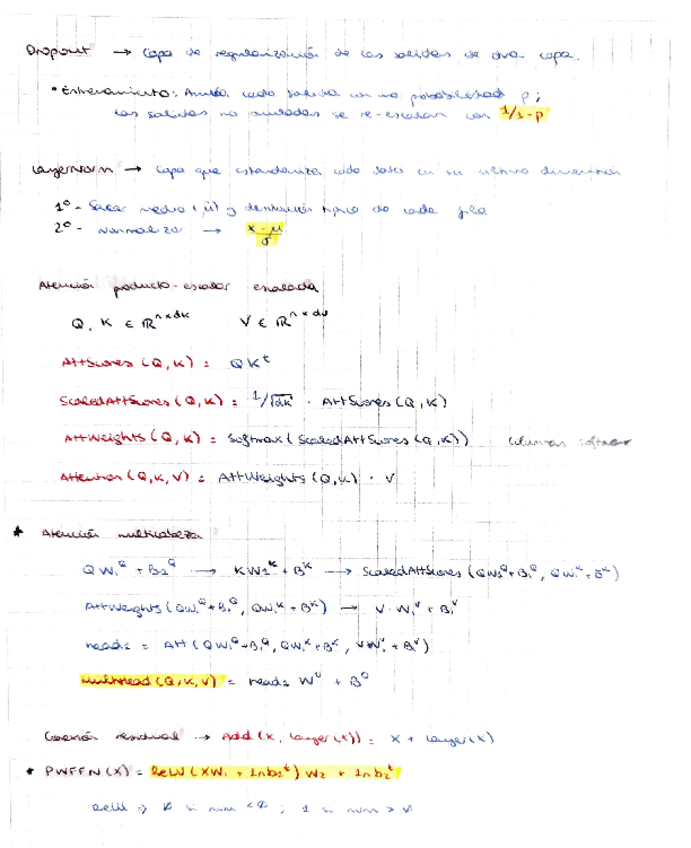 Dropout → Capa de regularización de las salidas de otra capa.
• Entrenamiento: Anula cada salida con una probabilidad p ;
las salidas no anuladas se re-escalan con 1/1-p
LayerNorm → Capa que estandariza cada dato en su última dimensión
1º - Sacar media (μ) y desviación típica de cada fila
2º - Normalizar → x - μ / σ
Atención producto-escalar escalada
Q, K ∈ ℝ^n×dk V ∈ ℝ^n×dv
AttScores (Q, K) = QK^t
ScaledAttScores (Q, K) = 1/√dk · AttScores (Q, K)
AttWeights (Q, K) = Softmax ( ScaledAttScores (Q, K))
Attention (Q, K, V) = AttWeights (Q, K) · V
* Atención multicabeza
QW₁^Q + B₁^Q → KW₁^K + B₁^K → ScaledAttScores (QW₁^Q + B₁^Q, QW₁^K + B^K)
AttWeights (QW₁^Q + B₁^Q, QW₁^K + B^K) → V · W₁^V + B₁^V
head₁ = Att (QW₁^Q + B₁^Q, QW₁^K + B^K, VW₁^V + B₁^V)
MultiHead (Q, K, V) = head₁ W^O + B^O
Conexión residual → Add (X, Layer (X)) = X + Layer (X)
* PWFFN (X) = ReLU (XW₁ + 1n b₁^t) W₂ + 1n b₂^t
ReLU ⇒ 0 si num < 0 ; 1 si num > 0